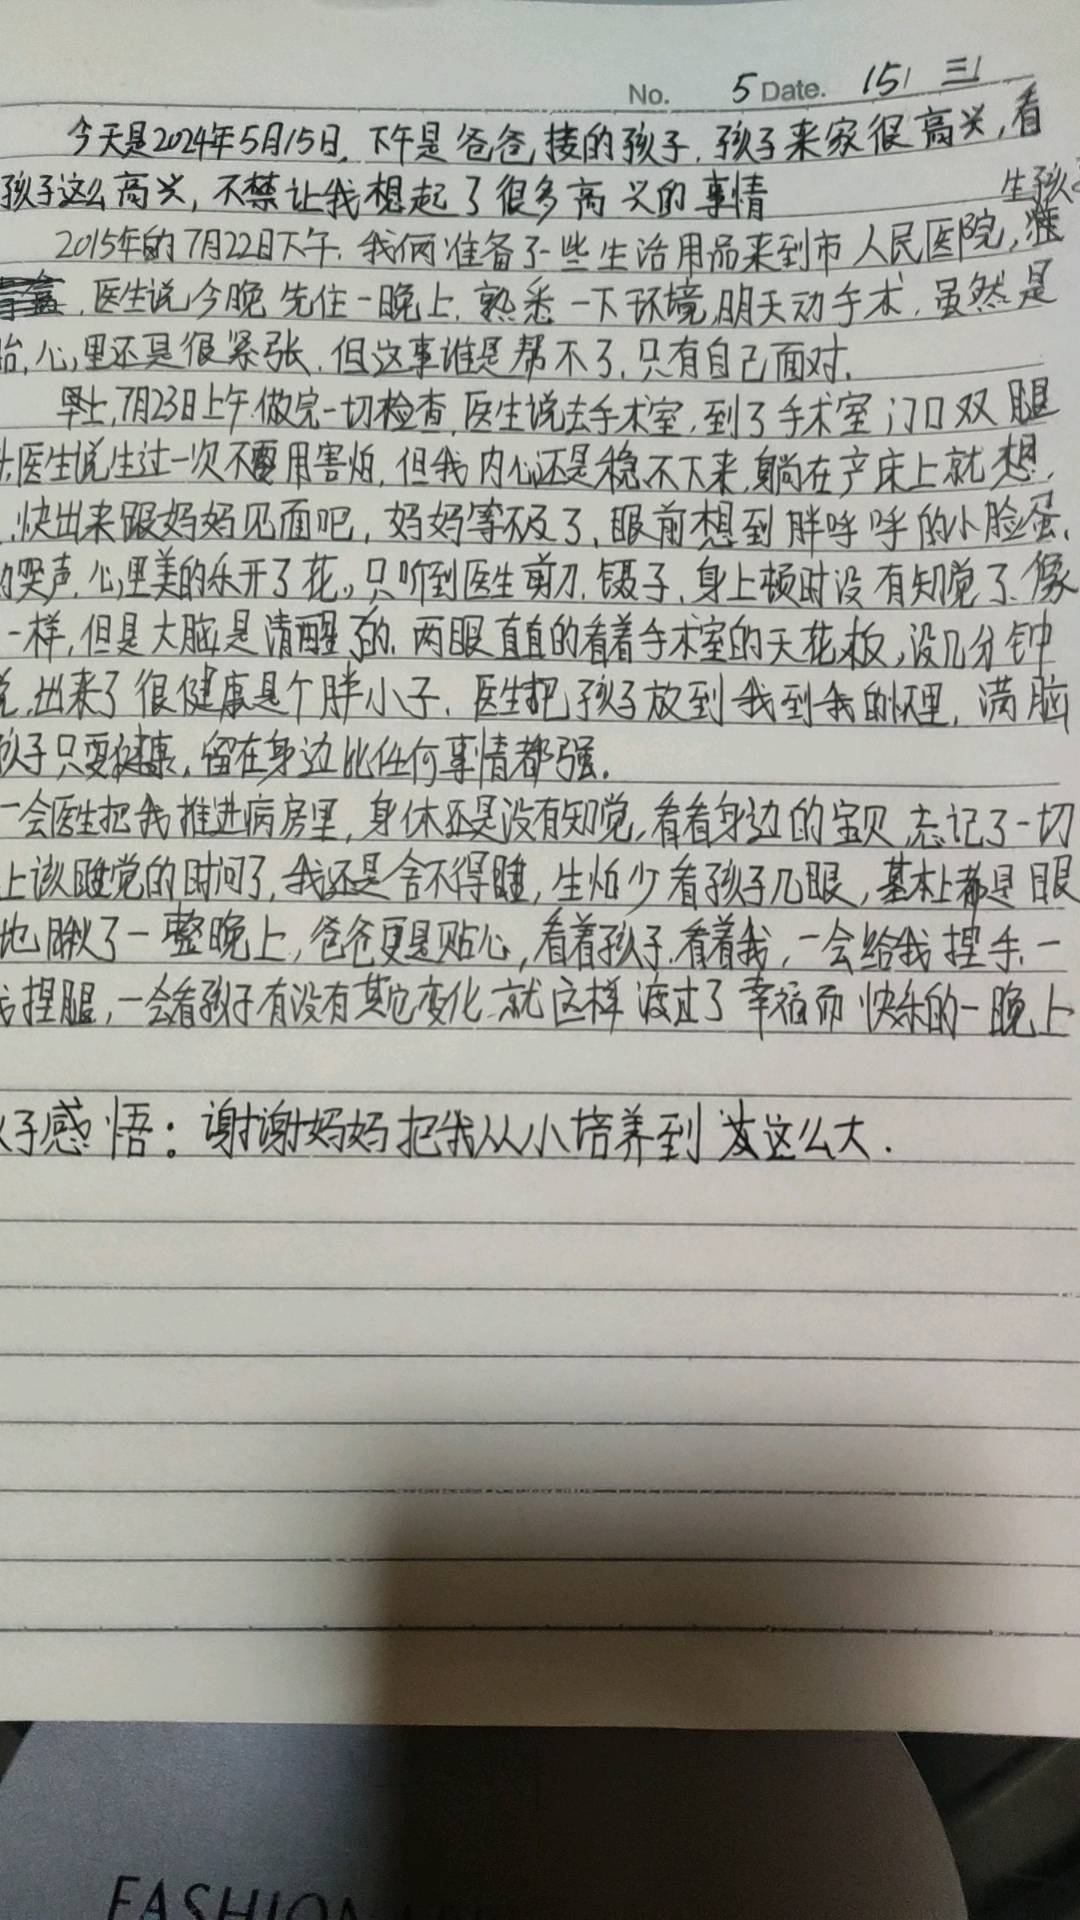 No. 5 Date. 15 三
今天是2024年5月15日,下午是爸爸接的孩子,孩子来家很高兴,看
孩子这么高兴,不禁让我想起了很多高兴的事情
生孩
2015年的7月22日下午,我俩准备了一些生活用品来到市人民医院,准
医生说今晚先住一晚上,熟悉一下环境,明天动手术,虽然是
胎,心里还是很紧张,但这事谁是帮不了,只有自己面对,
早上,7月23日上午做完一切检查,医生说去手术室,到了手术室门口双腿
医生说生过一次不要用害怕,但我内心还是稳不下来,躺在产床上就想,
快出来跟妈妈见面吧,妈妈等不及了,眼前想到胖呼呼的小脸蛋,
的哭声,心里美的乐开了花,只听到医生剪刀,镊子,身上顿时没有知觉了,像
一样,但是大脑是清醒的,两眼直直的看着手术室的天花板,没几分钟
出来了很健康是个胖小子,医生把孩子放到我到我的怀里,满脑
孩子只要健康,留在身边比任何事情都强.
一会医生把我推进病房里,身体还是没有知觉,看看身边的宝贝,忘记了一切
上该睡觉的时间了,我还是舍不得睡,生怕少看孩子几眼,基本上都是眼
地瞅了一整晚上,爸爸更是贴心,看着孩子,看着我,一会给我捏手,一
捏腿,一会看孩子有没有其它变化,就这样渡过了幸福而快乐的一晚上
子感悟:谢谢妈妈把我从小培养到这么大.
FASHION